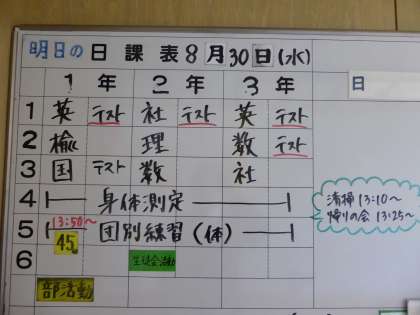 明日の日課表8月30日(水)
日
1年 2年 3年
1 英 テスト 社 テスト 英 テスト
2 楡 理 数 テスト
3 国 テスト 数 社
4 身体測定
清掃13:10〜
帰りの会13:25〜
13:50〜
5 団別練習(体)
45
6 生徒会活動
部活動